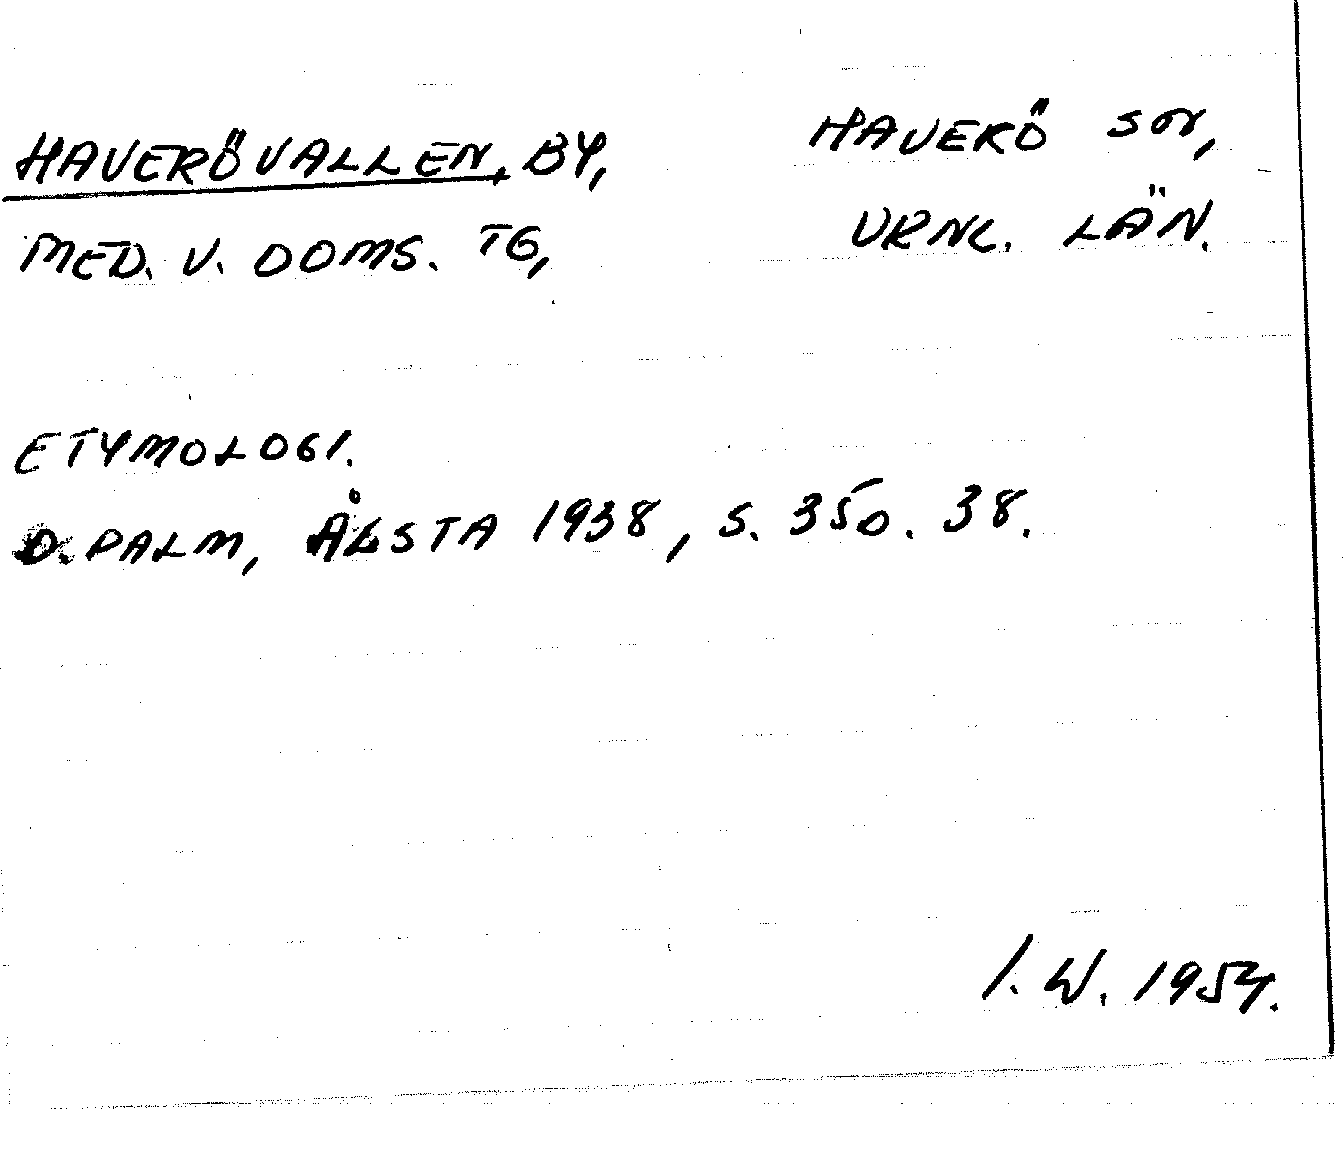 HAVERÖVALLEN, BY, HAVERÖ SN,
MED. V. DOMS. TG, VRNL. LÄN.
ETYMOLOGI.
D. PALM, ÅLSTA 1938, S. 350. 38.
I. W. 1954.